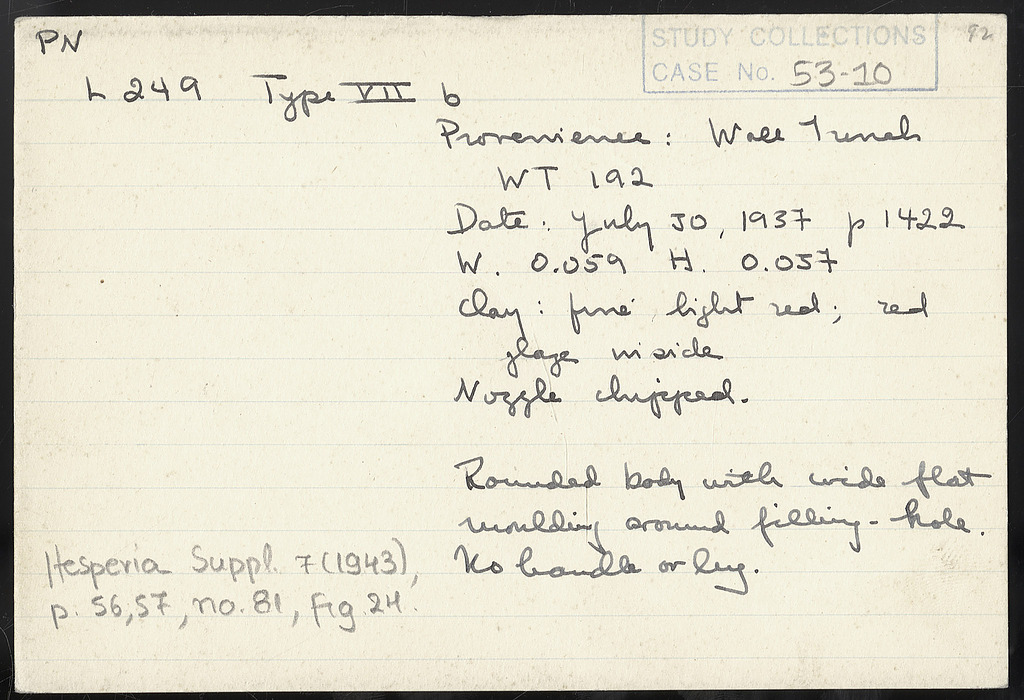 PN
STUDY COLLECTIONS
CASE No. 53-10
92
L 249 Type VII b
Provenience: Wall Trench
WT 192
Date: July 30, 1937 p 1422
W. 0.059 H. 0.037
Clay: fine light red; red
glaze inside
Nozzle chipped.
Rounded body with wide flat
moulding around filling-hole.
No handle or lug.
Hesperia Suppl. 7 (1943),
p. 56,57, no. 81, fig 24.